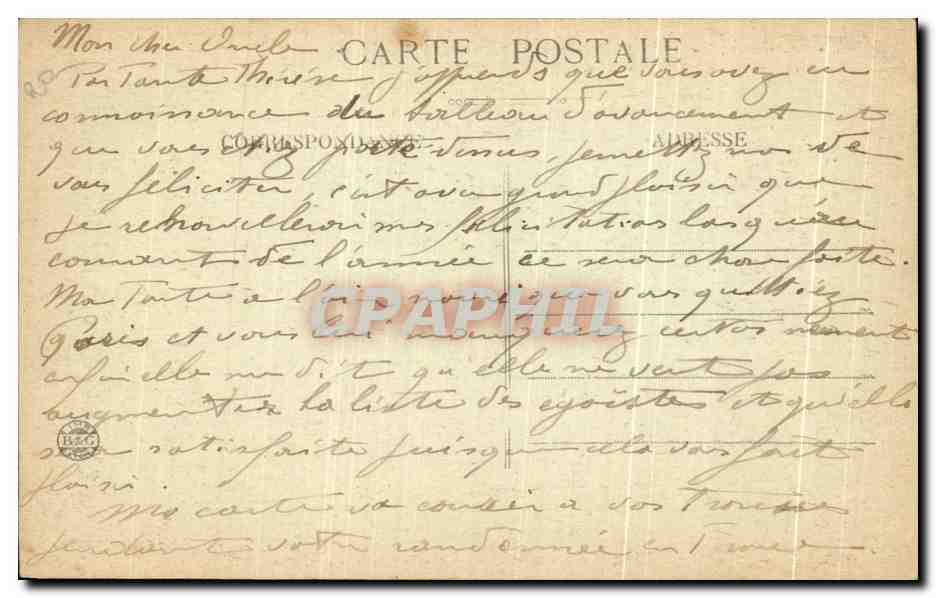 Mon cher Oncle
CARTE POSTALE
Par Tante Thérèse j'apprends que vous avez eu
connaissance du tableau d'avancement et
CORRESPONDANCE
ADRESSE
que vous étiez porté dessus, permettez moi de
vous féliciter, c'est avec grand plaisir que
je renouvellerai mes félicitations lorsqu'au
courant de l'année ce sera chose faite.
Ma Tante a l'air que vous quittiez
Paris et vous lui manquerez certainement
enfin elle me dit qu'elle ne veut pas
augmenter la liste des égoïstes et qu'elle
sera satisfaite puisque cela vous fait
plaisir.
B&G
CPAPHIL
Ma carte va courir à vos trousses
pendant votre randonnée en France.